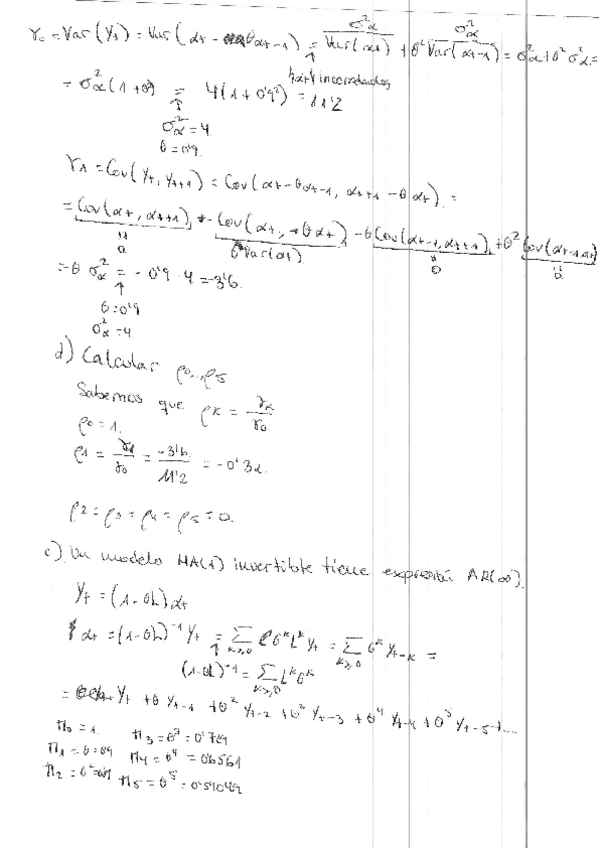 γ₀ = Var(Yₜ) = Var(αₜ - θαₜ₋₁) = Var(αₜ) + θ² Var(αₜ₋₁) = σ²α + θ² σ²α =
σ²α σ²α
↑
incorrelados
= σ²α (1+θ²) = 4(1+0'9²) = 11'2
↑
σ²α = 4
θ = 0'9
γ₁ = Cov(Yₜ, Yₜ₊₁) = Cov(αₜ - θαₜ₋₁, αₜ₊₁ - θαₜ) =
= Cov(αₜ, αₜ₊₁) + Cov(αₜ, -θαₜ) - θ Cov(αₜ₋₁, αₜ₊₁) + θ² Cov(αₜ₋₁, αₜ)
0 θVar(αₜ) 0 0
= -θ σ²α = -0'9 · 4 = -3'6.
↑
θ = 0'9
σ²α = 4
d) Calcular ρ₀...ρ₅
Sabemos que ρₖ = γₖ/γ₀
ρ₀ = 1.
ρ₁ = γ₁/γ₀ = -3'6/11'2 = -0'32.
ρ₂ = ρ₃ = ρ₄ = ρ₅ = 0.
c) Un modelo MA(1) invertible tiene expresión AR(∞).
Yₜ = (1-θL)αₜ
αₜ = (1-θL)⁻¹ Yₜ = Σ θᵏ Lᵏ Yₜ = Σ θᵏ Yₜ₋ₖ =
↑ k≥0 k≥0
(1-θL)⁻¹ = Σ Lᵏ θᵏ
k≥0
= Yₜ + θ Yₜ₋₁ + θ² Yₜ₋₂ + θ³ Yₜ₋₃ + θ⁴ Yₜ₋₄ + θ⁵ Yₜ₋₅ + ...
Π₀ = 1. Π₃ = θ³ = 0'729
Π₁ = θ = 0'9 Π₄ = θ⁴ = 0'6561
Π₂ = θ² = 0'81 Π₅ = θ⁵ = 0'59049